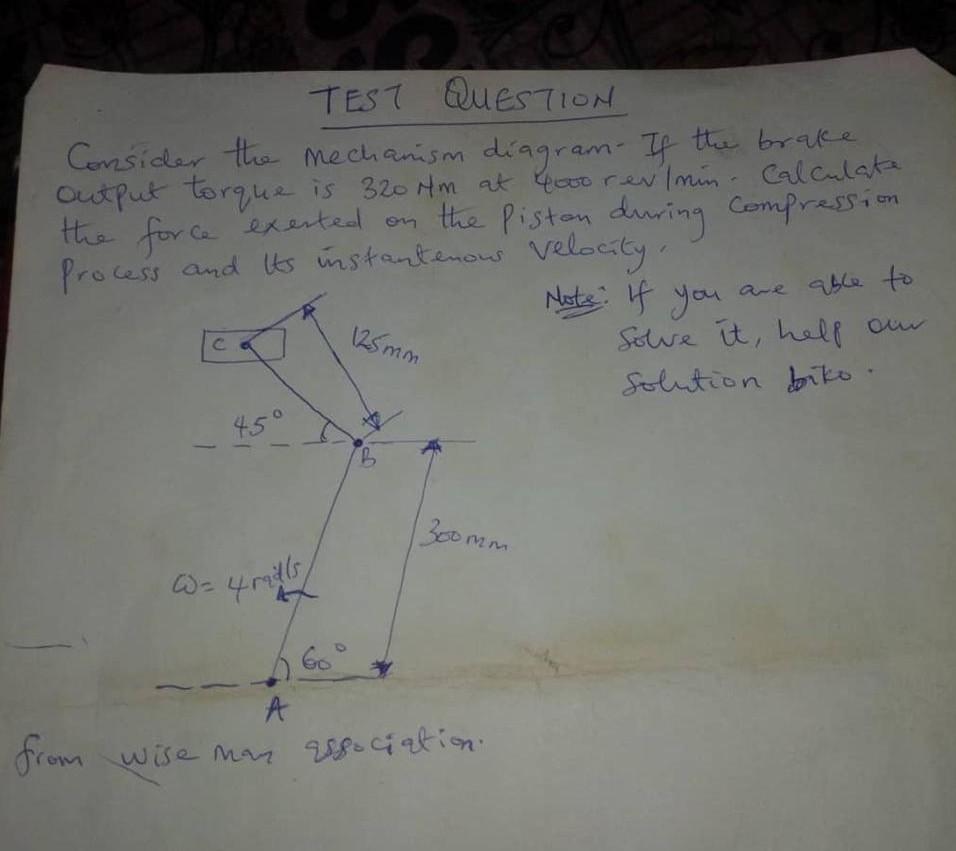 TEST QUESTION
Consider the mechanism diagram. If the brake
output torque is 320 Nm at 4000 rev/min. Calculate
the force exerted on the piston during compression
process and its instantenous velocity.
Note: If you are able to
solve it, help our
solution biko.
C
125mm
45°
B
300mm
ω = 4 rad/s
60°
A
from wise man association.